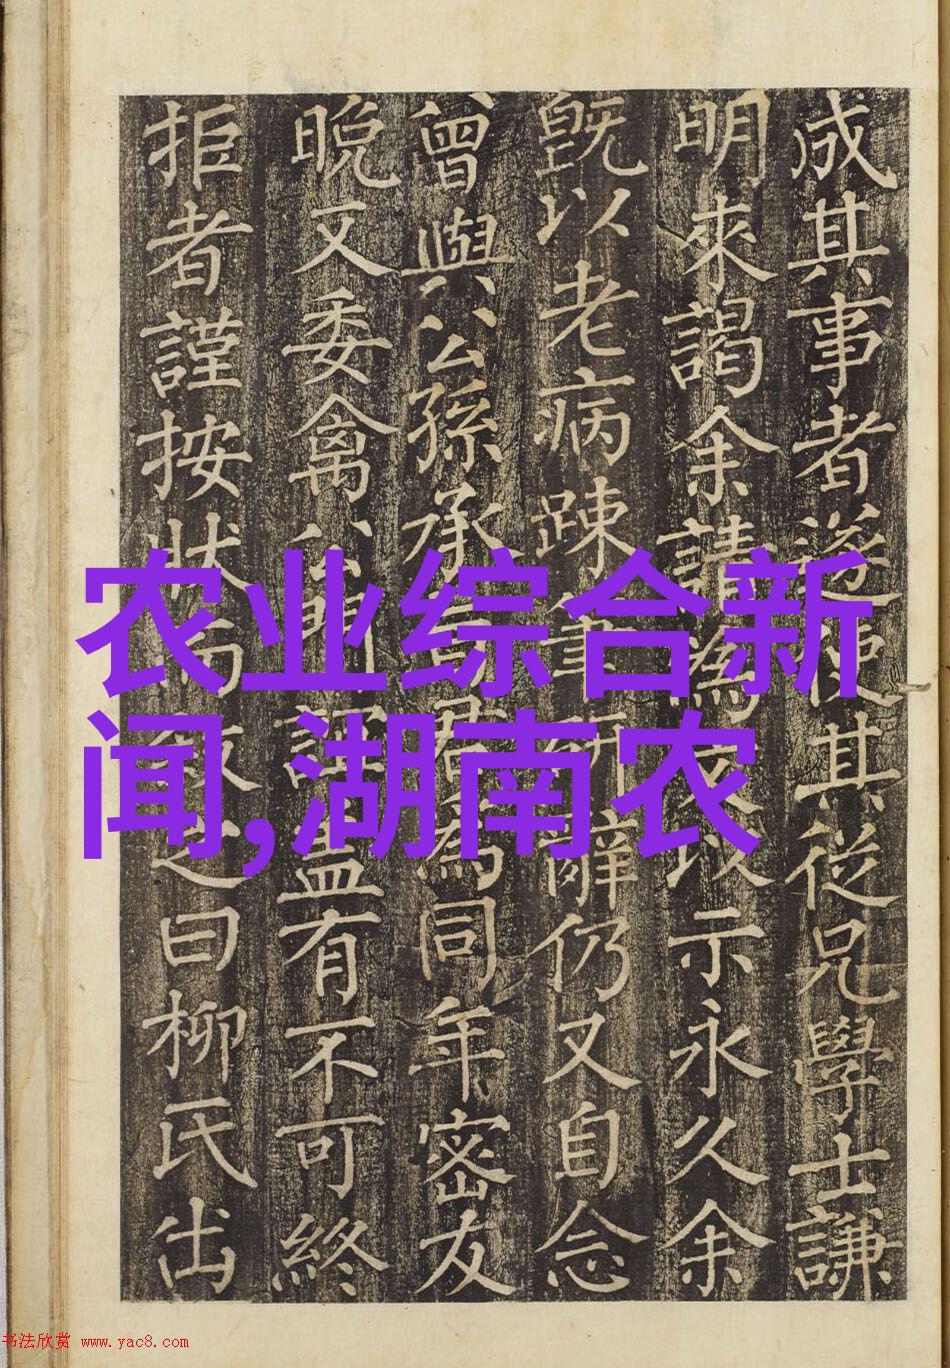 成其事者遂使其從兄學士謙
明來謁余請為文以示永久余
既以老病踈筆研辭仍又自念
曾與公孫承旨君為同年密友
晚又委禽公門誼益有不可終
拒者謹按狀之曰柳氏出
农业综合新
闻,湖南农
书法欣赏 www.yac8.com